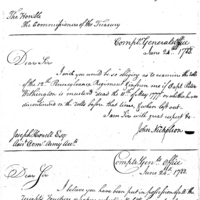 The Honble
The Commissioners of the Treasury
Comptr. Generals Office
June 24th 1788.
Dear Sir
I wish you would be so obliging as to examine the rolls
of the 12th Pennsylvania Regiment & inform me if Capt. Peter
Withington is mustered dead the 11th of May 1777 or when
discontinued on the rolls before that time, & when left out.
I am Sir with great respect &c.
John Nicholson
Joseph Howell Esq
Comr. Army Acct.
Comptr. Genls. Office
June 24th 1788.
Dear Sir
I believe you have been put in possession of all the